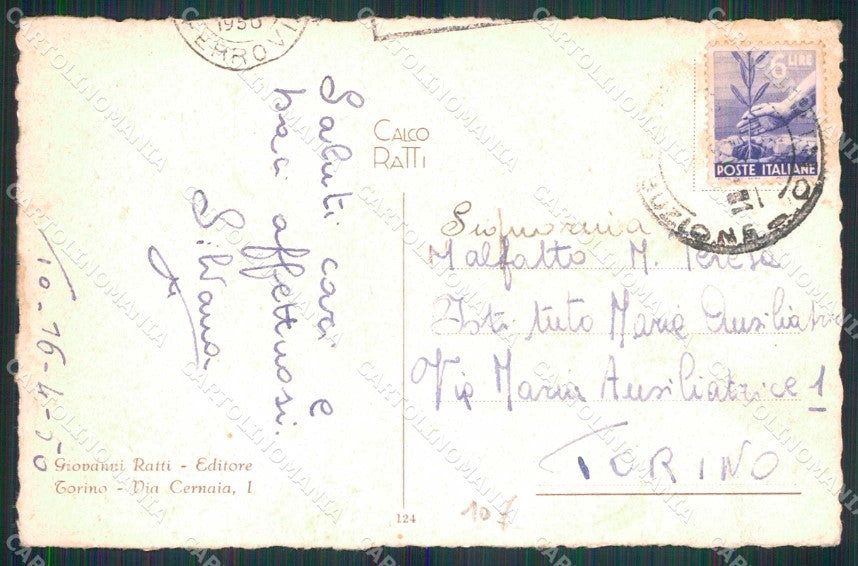 1950
FERROVI
Saluti cari e
baci affettuosi.
Silvana
To-16-4-50
CALCO
RATTI
6 LIRE
POSTE ITALIANE
Signorina
Malfatto M. Teresa
Istituto Maria Ausiliatrice
Via Maria Ausiliatrice 1
TORINO
Giovanni Ratti - Editore
Torino - Via Cernaia, 1
124
107
CARTOLINOMANIA